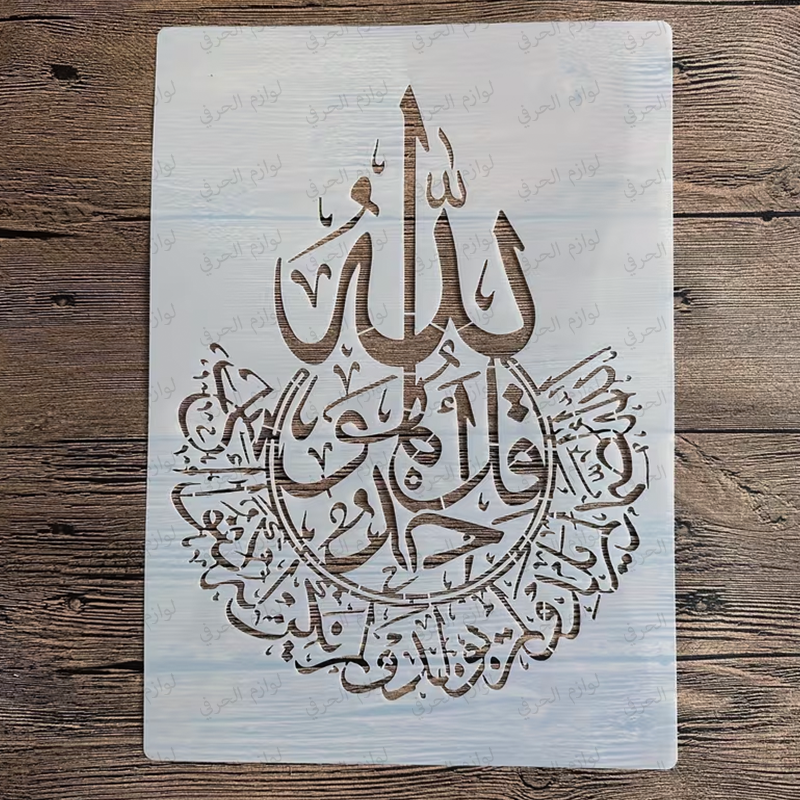 قل هو الله أحد
الله الصمد لم يلد ولم يولد ولم يكن له كفوا أحد
لوازم الحرفي